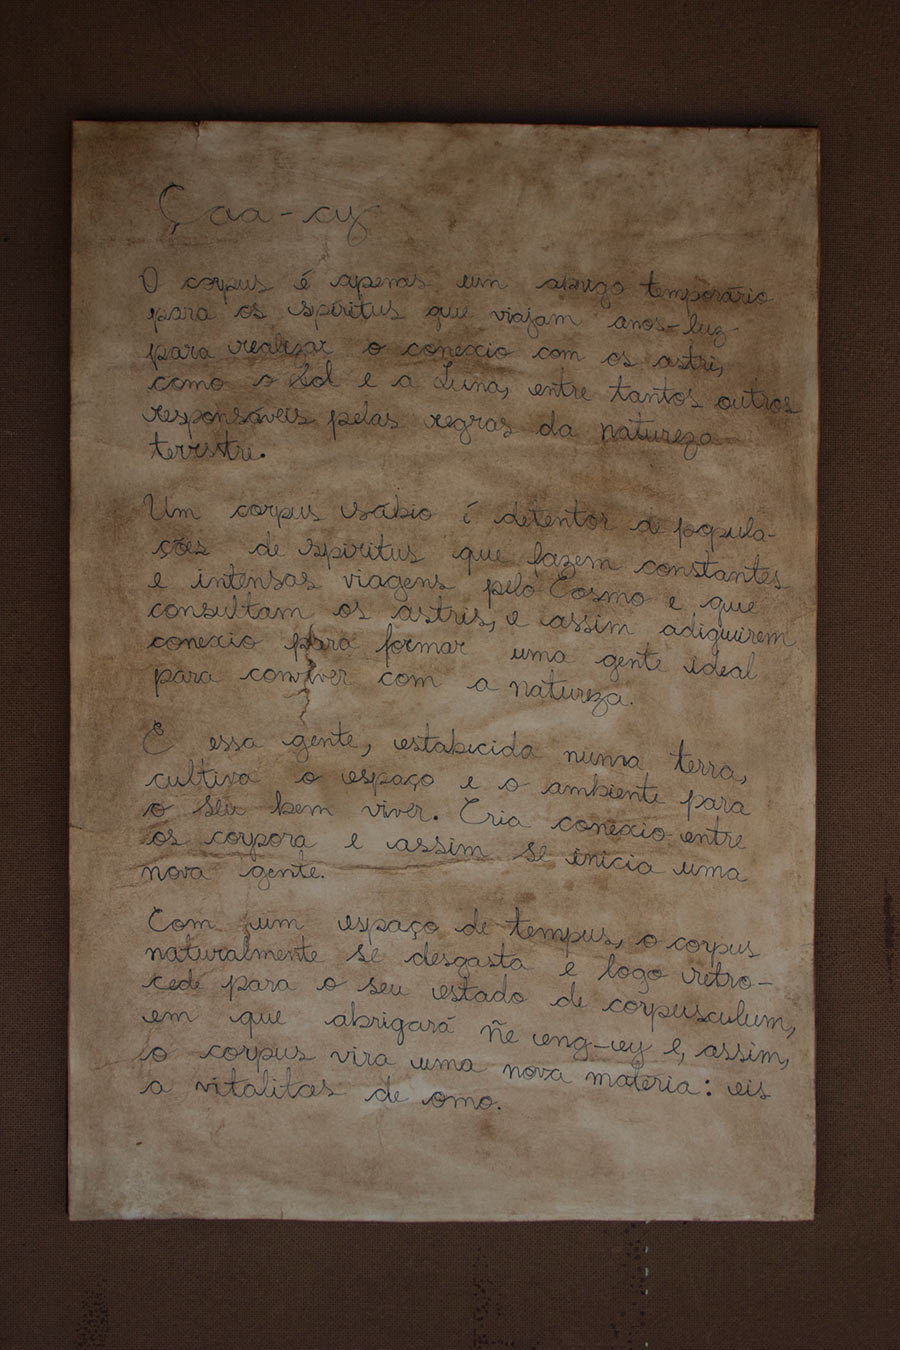 Çaa-cy
O corpus é apenas um abrigo temporário
para os spiritus que viajam anos-luz
para realizar o conexio com os astri,
como o Sol e a Luna, entre tantos outros
responsáveis pelas regras da natureza
terrstre.
Um corpus sábio é detentor de popula-
ções de spiritus que fazem constantes
e intensas viagens pelo Cosmo e que
consultam os astris, e assim adiquirem
conexio para formar uma gente ideal
para conviver com a natureza.
E essa gente, estabicida numa terra,
cultiva o espaço e o ambiente para
o seu bem viver. Cria conexio entre
os corpora e assim se inicia uma
nova gente.
Com um espaço de tempus, o corpus
naturalmente se desgasta e logo retro-
cede para o seu estado de corpusculum,
em que abrigará ñe eng-ey e, assim,
o corpus vira uma nova materia: eis
a vitalitaes de omo.